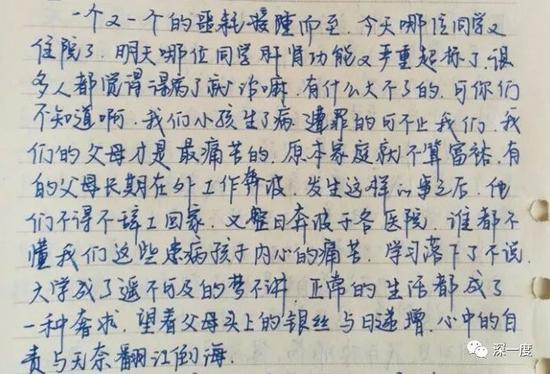 一个又一个的噩耗接踵而至，今天哪位同学又
住院了，明天哪位同学肝肾功能又严重超标了，很
多人都觉得得病了就咋嘛，有什么大不了的，可你们
不知道啊，我们小孩生了病遭罪的可不止我们，我
们的父母才是最痛苦的，原本家庭就不算富裕，有
的父母长期在外工作奔波，发生这样的事之后，他
们不得不辞工回家，又整日奔波于各医院，谁都不
懂我们这些患病孩子内心的痛苦，学习落下了不说，
大学成了遥不可及的梦不讲，正常的生活都成了
一种奢求，望着父母头上的银丝与日递增，心中的自
责与无奈翻江倒海。
深一度